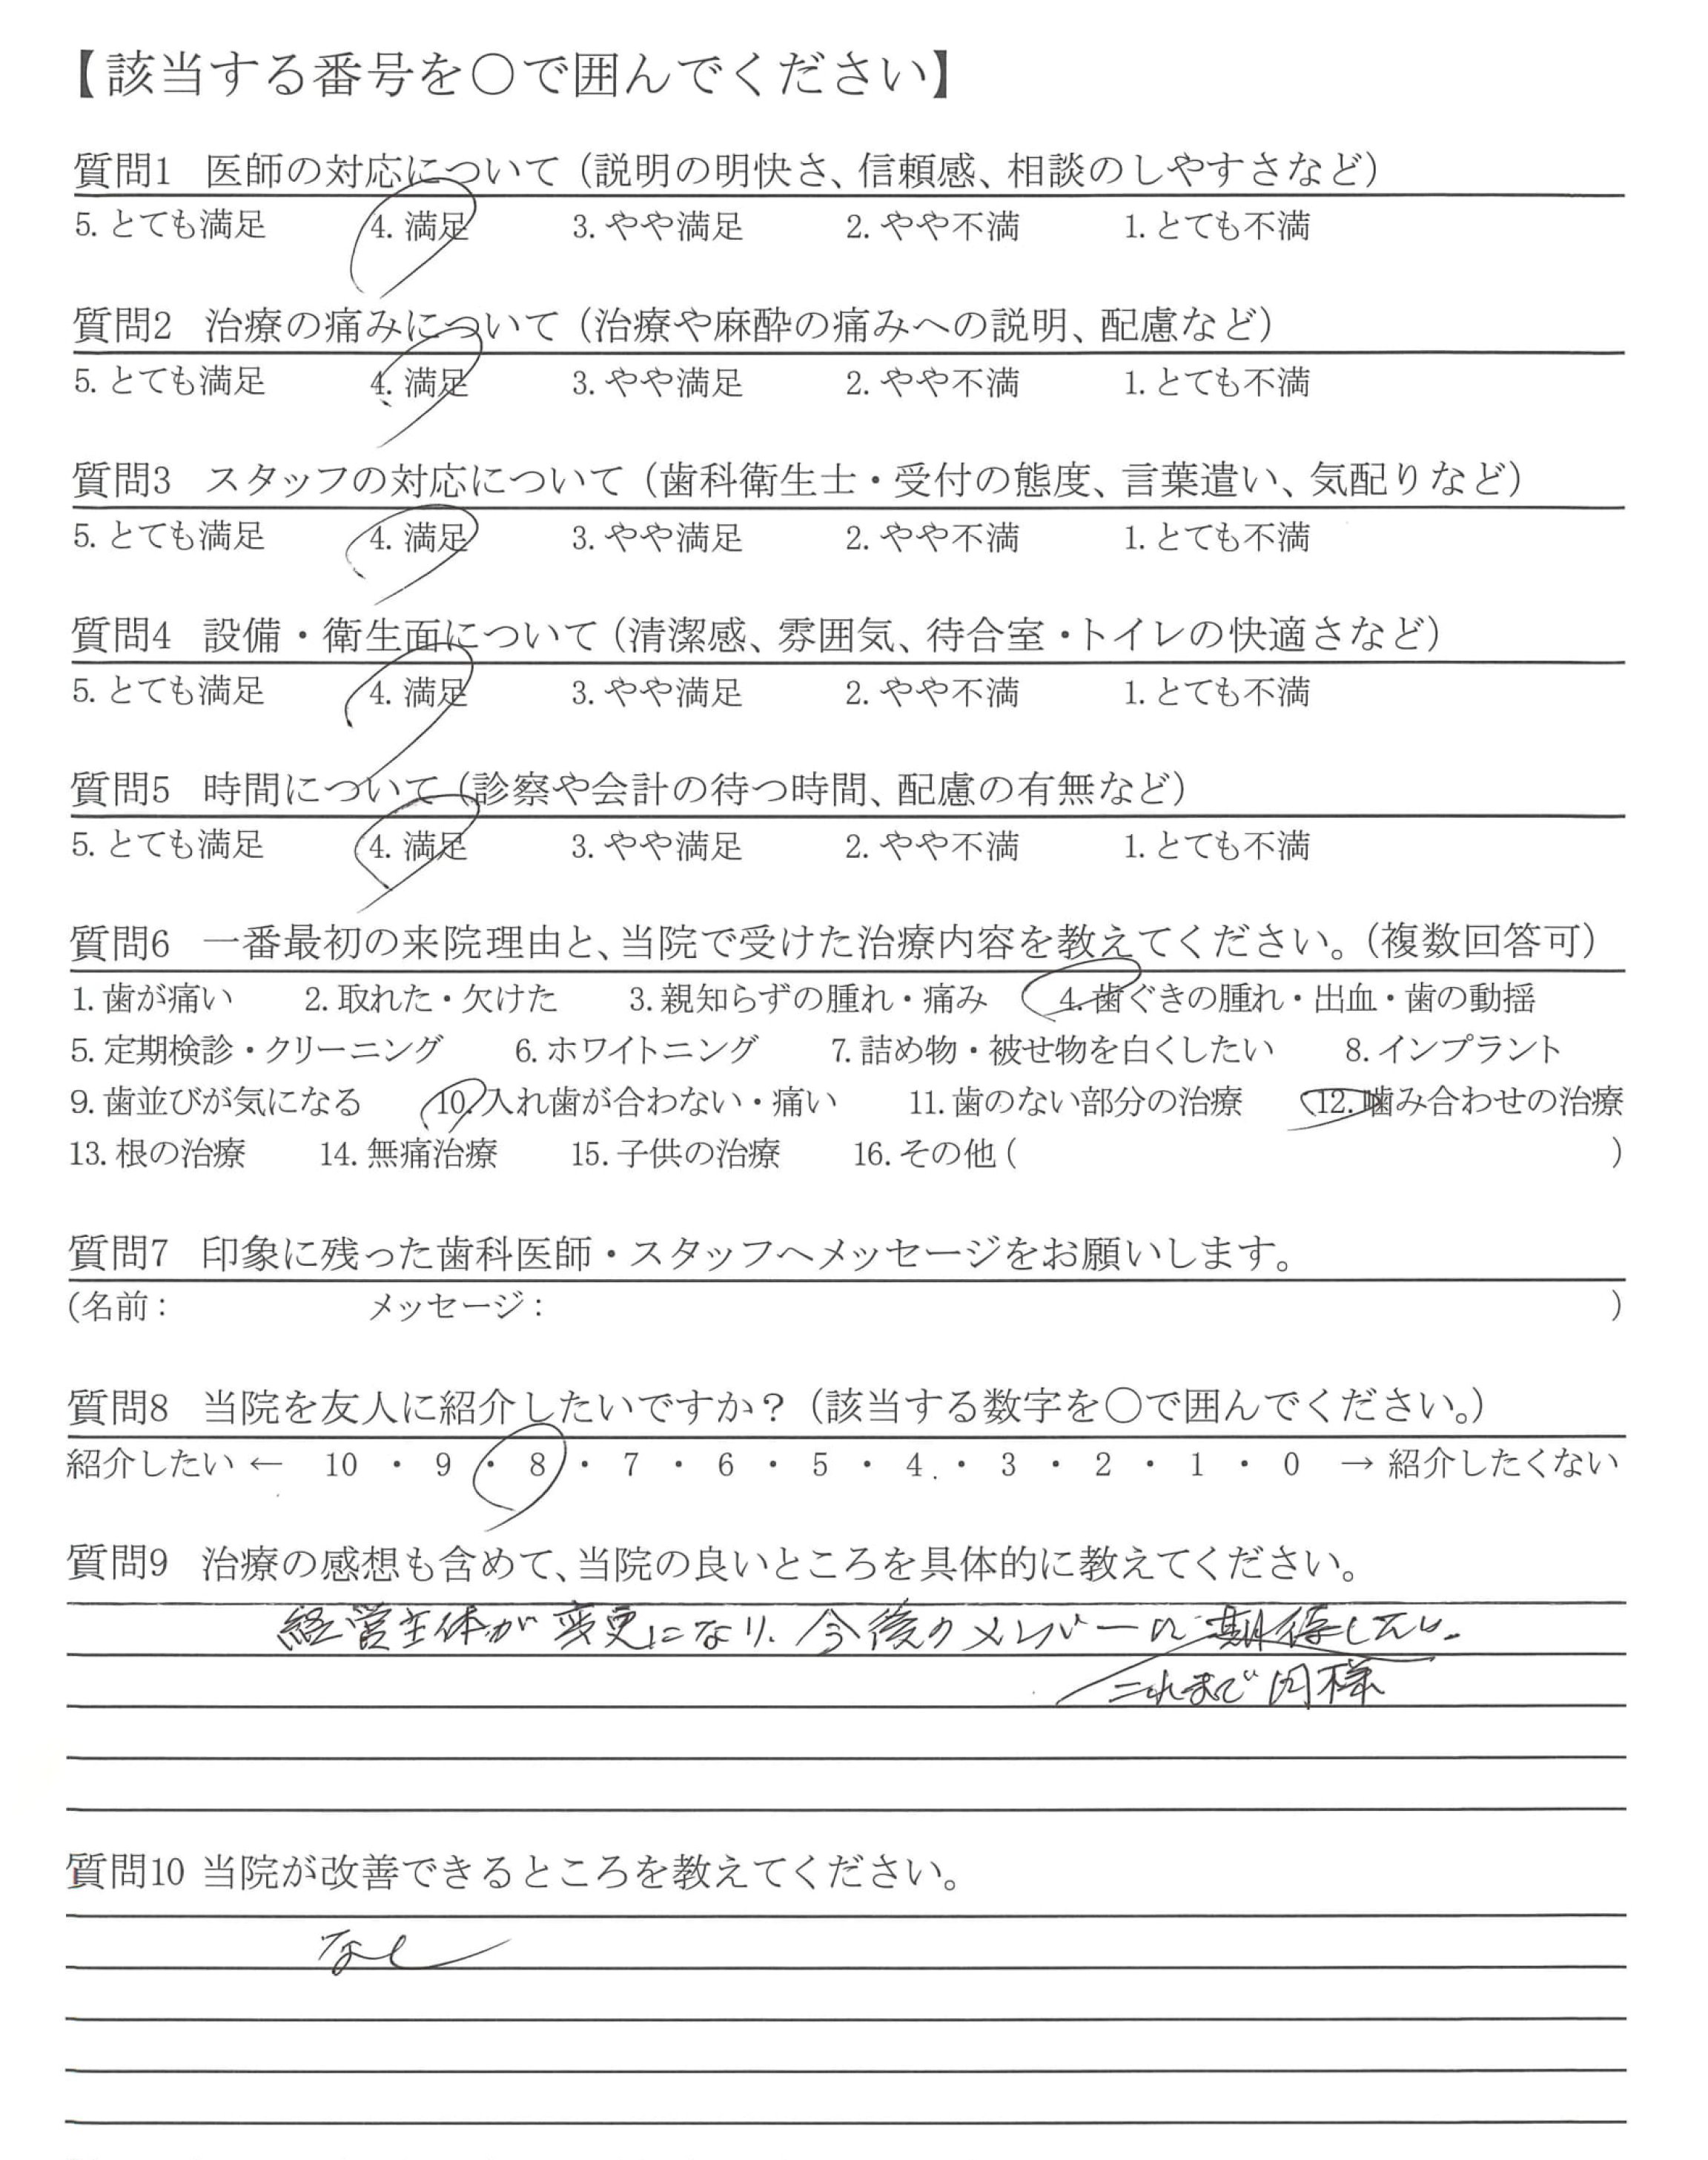 【該当する番号を○で囲んでください】
質問1 医師の対応について（説明の明快さ、信頼感、相談のしやすさなど）
5. とても満足 4. 満足 3. やや満足 2. やや不満 1. とても不満
質問2 治療の痛みについて（治療や麻酔の痛みへの説明、配慮など）
5. とても満足 4. 満足 3. やや満足 2. やや不満 1. とても不満
質問3 スタッフの対応について（歯科衛生士・受付の態度、言葉遣い、気配りなど）
5. とても満足 4. 満足 3. やや満足 2. やや不満 1. とても不満
質問4 設備・衛生面について（清潔感、雰囲気、待合室・トイレの快適さなど）
5. とても満足 4. 満足 3. やや満足 2. やや不満 1. とても不満
質問5 時間について（診察や会計の待つ時間、配慮の有無など）
5. とても満足 4. 満足 3. やや満足 2. やや不満 1. とても不満
質問6 一番最初の来院理由と、当院で受けた治療内容を教えてください。（複数回答可）
1. 歯が痛い 2. 取れた・欠けた 3. 親知らずの腫れ・痛み 4. 歯ぐきの腫れ・出血・歯の動揺
5. 定期検診・クリーニング 6. ホワイトニング 7. 詰め物・被せ物を白くしたい 8. インプラント
9. 歯並びが気になる 10. 入れ歯が合わない・痛い 11. 歯のない部分の治療 12. 噛み合わせの治療
13. 根の治療 14. 無痛治療 15. 子供の治療 16. その他（ ）
質問7 印象に残った歯科医師・スタッフへメッセージをお願いします。
（名前： メッセージ： ）
質問8 当院を友人に紹介したいですか？（該当する数字を○で囲んでください。）
紹介したい ← 10 ・ 9 ・ 8 ・ 7 ・ 6 ・ 5 ・ 4 ・ 3 ・ 2 ・ 1 ・ 0 → 紹介したくない
質問9 治療の感想も含めて、当院の良いところを具体的に教えてください。
経営主体が変更になり、今後のメンバーに期待したい。
これまで同様
質問10 当院が改善できるところを教えてください。
なし